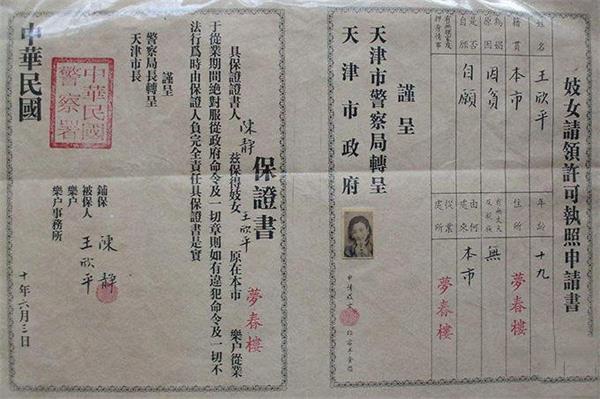 妓女請領許可執照申請書
姓名 王欣平 年龄 十九
籍貫 本市 住所 夢春樓
為娼原因 因貧 有無丈夫及親族 無
是否自願 自願 由何處來 本市
有無押賣情事 從業處所 夢春樓
謹呈
天津市警察局轉呈
天津市政府
保證書
具保證證書人 陳靜 茲保得妓女 王欣平 原在本市 夢春樓 樂户從業
于從業期間絶對服從政府命令及一切章則如有違犯命令及一切不
法行爲時由保證人負完全責任具保證書是實
謹呈
警察局長轉呈
天津市長
鋪保 陳靜
被保人 王欣平
樂户
樂户事務所
十年六月三日
中華民國
警察署
中華民國